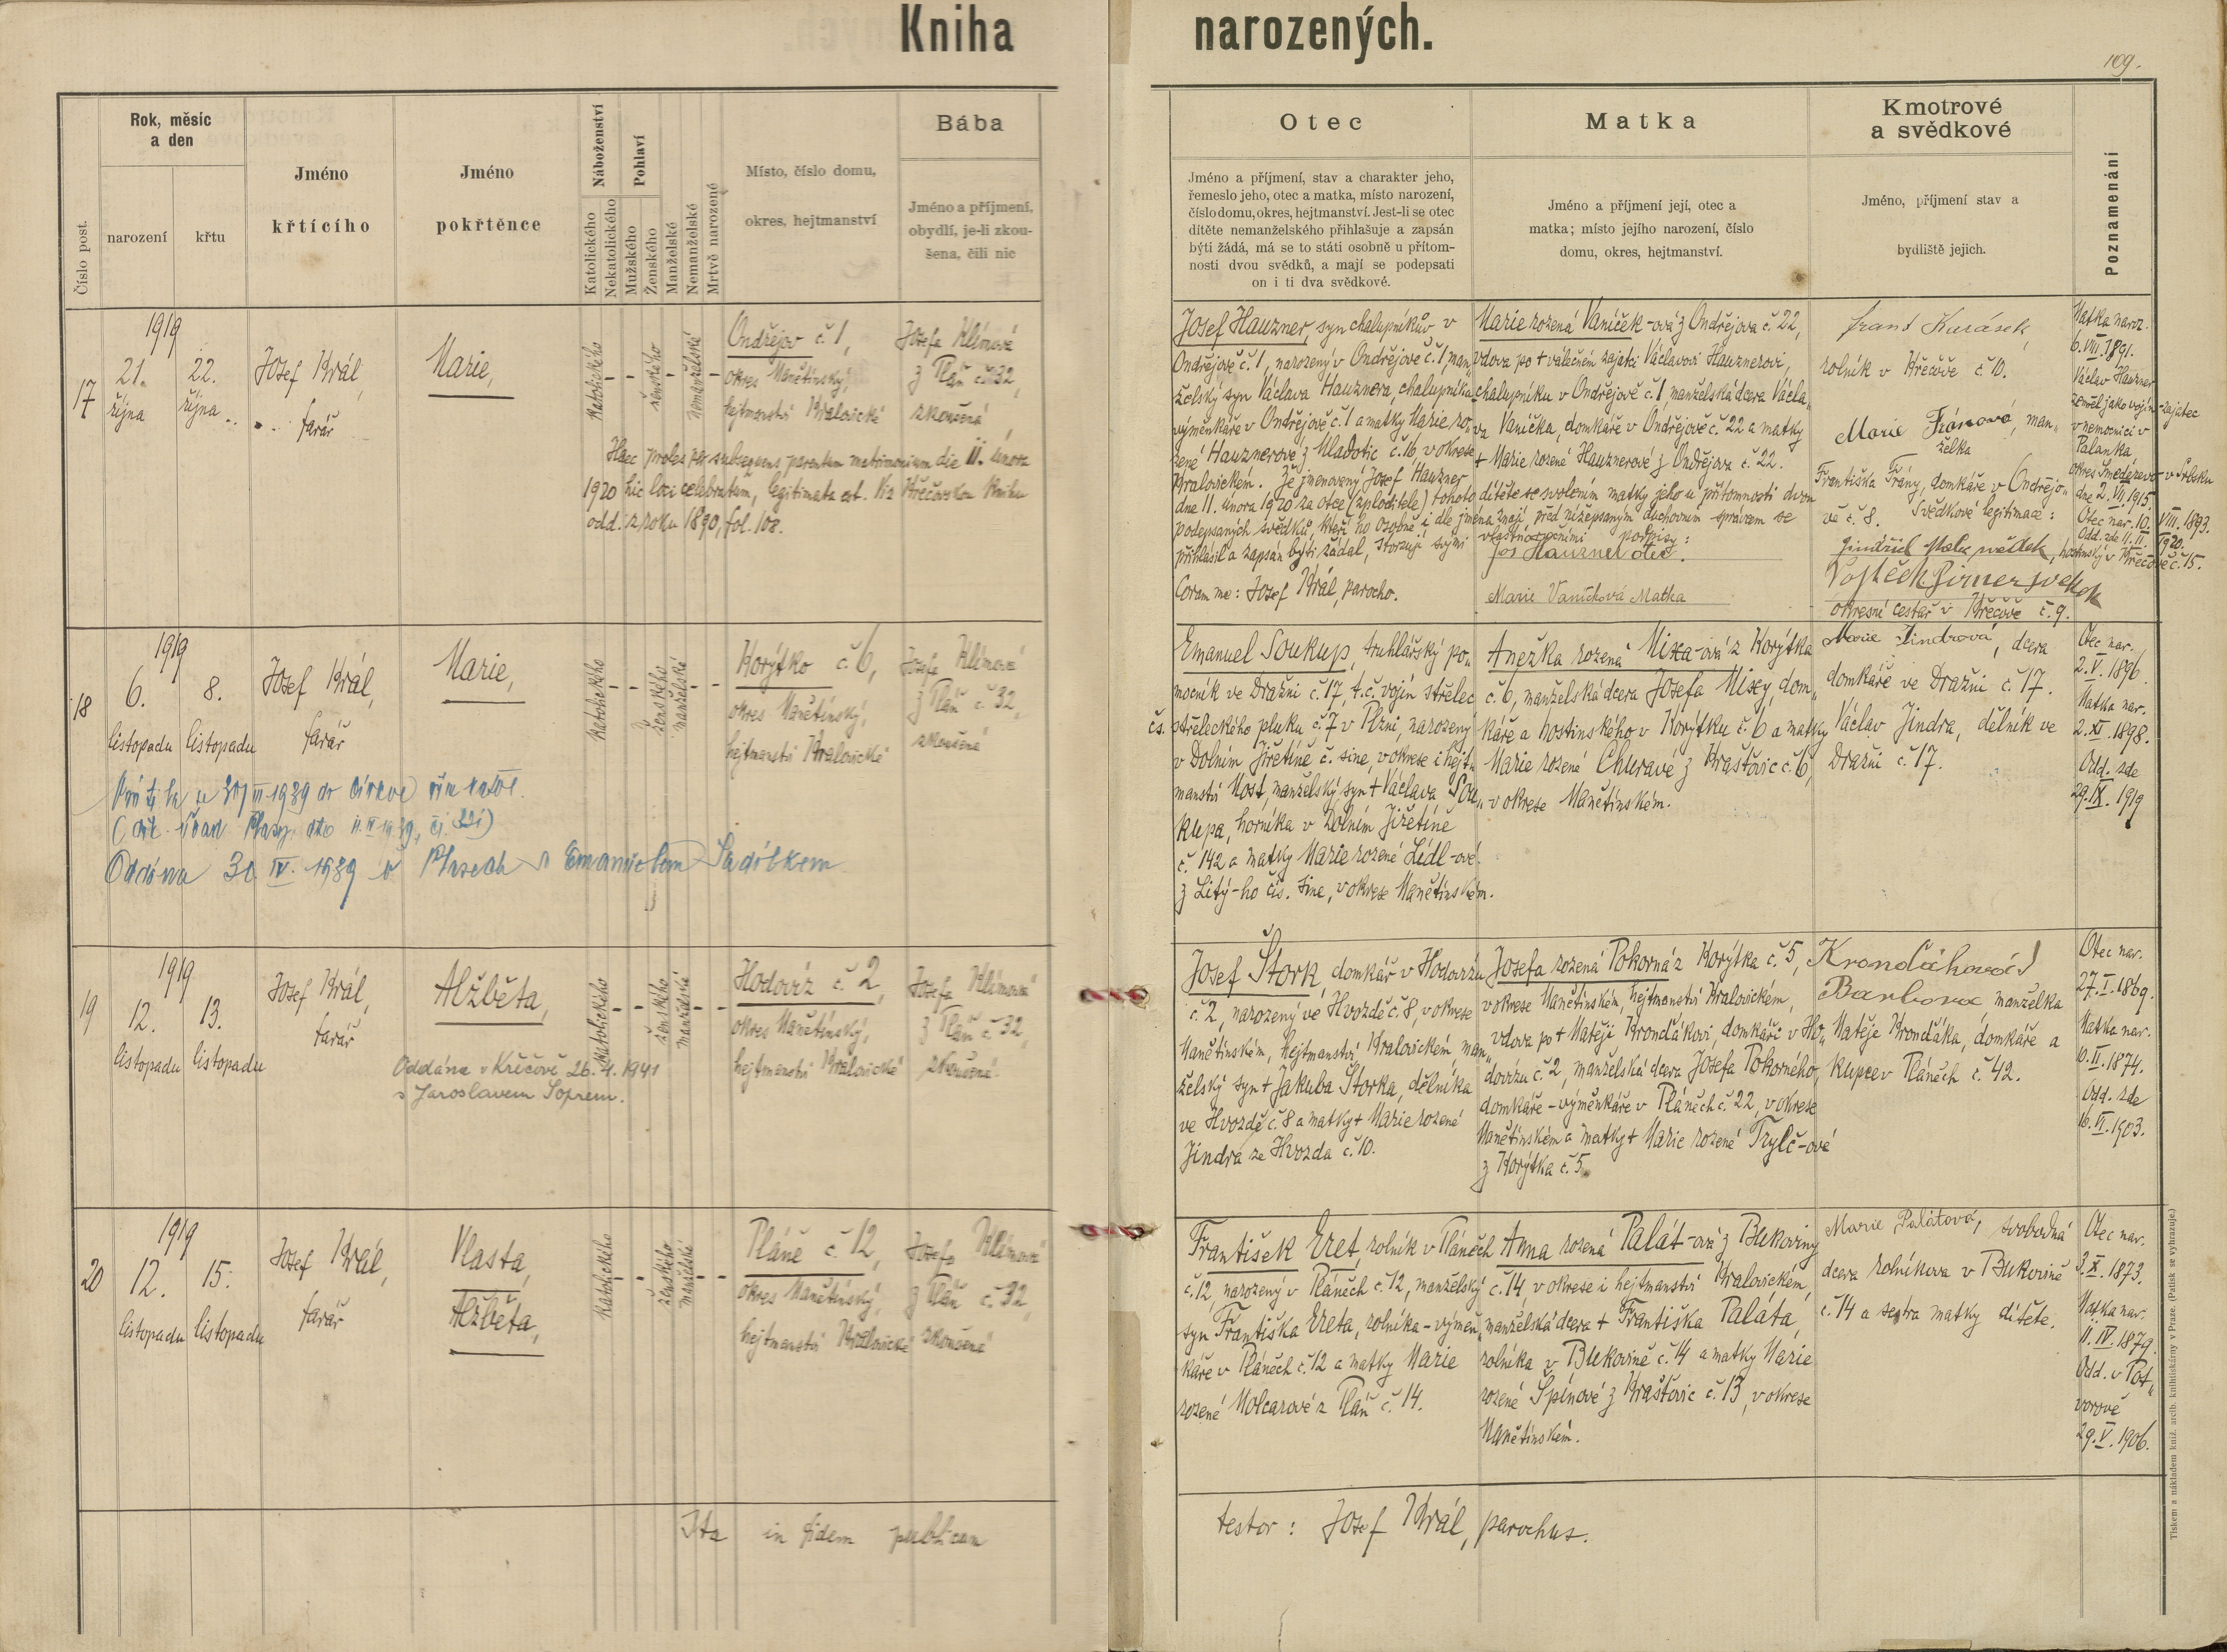 Kniha narozených.
109.
Číslo post.
Rok, měsíc
a den
narození
křtu
Jméno
křtícího
Jméno
pokřtěnce
Náboženství
Katolického
Nekatolického
Pohlaví
Mužského
Ženského
Manželské
Nemanželské
Mrtvě narozené
Místo, číslo domu,
okres, hejtmanství
Bába
Jméno a příjmení,
obydlí, je-li zkou-
šena, čili nic
Otec
Jméno a příjmení, stav a charakter jeho,
řemeslo jeho, otec a matka, místo narození,
číslo domu, okres, hejtmanství. Jest-li se otec
dítěte nemanželského přihlašuje a zapsán
býti žádá, má se to státi osobně u přítom-
nosti dvou svědků, a mají se podepsati
on i ti dva svědkové.
Matka
Jméno a příjmení její, otec a
matka; místo jejího narození, číslo
domu, okres, hejtmanství.
Kmotrové
a svědkové
Jméno, příjmení stav a
bydliště jejich.
Poznamenání
17
1919
21.
října
22.
října
Josef Král,
farář
Marie,
katolického
ženského
nemanželské
Ondřejov č. 1,
okres Manětínský,
hejtmanství Kralovické
Josefa Klímová
z Plání č. 32,
zkoušená
Haec proles per subsequens parentum matrimonium die 11. února
1920 hic loci celebratum, legitimata est. Viz Křečovskou knihu
odd. z roku 1890, fol. 108.
Josef Hauzner, syn chalupníkův v
Ondřejově č. 1, narozený v Ondřejově č. 1, man„
želský syn Václava Hauznera, chalupníka
výměnkáře v Ondřejově č. 1 a matky Marie ro„
zené Hauznerové z Mladotic č. 16, v okrese
Kralovickém. Že jmenovaný Josef Hauzner
dne 11. února 1920 za otce (zploditele) tohoto dítěte se svolením matky jeho u přítomnosti dvou
podepsaných svědků, kteří ho osobně i dle jména znají, před nížepsaným duchovním správcem se
přihlásil a zapsán býti žádal, stvrzují svými vlastnoručními podpisy:
Jos Hauzner otec.
Coram me: Josef Král, parocho.
Marie Vaníčková Matka
Marie rozená Vaníček-ová z Ondřejova č. 22,
vdova po + válečném zajatci Václavovi Hauznerovi,
chalupníku v Ondřejově č. 1 manželská dcera Václa„
va Vaníčka, domkáře v Ondřejově č. 22 a matky
+ Marie rozené Hauznerové z Ondřejova č. 22.
Frant Karásek,
rolník v Křečově č. 10.
Marie Fránová, man„
želka
Františka Frány, domkáře v Ondřejo„
vě č. 8. Svědkové legitimace:
Jindřich Malu svědek, hostinský v Křečově č. 15.
okresní cestář v Křečově č. 9.
Matka naroz.
6. VIII. 1891.
Václav Hauzner
zemřel jako vojín-zajatec
v nemocnici v
Palanka
okres Smederevo v Srbsku
dne 2. VII. 1915.
Otec nar. 10. VIII. 1893.
Odd. zde 11. II. 1920.
18
1919
6.
listopadu
8.
listopadu
Josef Král,
farář
Marie,
katolického
ženského
manželské
Korýtko č. 6,
okres Manětínský,
hejtmanství Kralovické
Josefa Klímová
z Plání č. 32,
zkoušená
1939 do církve řím katol.
Oddána 30. IV. 1939 v Plasech s Emanuelem Sadílkem
Emanuel Soukup, truhlářský po„
mocník ve Dražni č. 17, t.č. vojín střelec
čs. střeleckého pluku č. 7 v Plzni, narozený
v Dolním Jiřetíně č. sine, v okrese i hejt„
manství Most, manželský syn + Václava Sou„
kupa, horníka v Dolním Jiřetíně
č. 142 a matky Marie rozené Lídl-ové
z Litý-ho čís. sine, v okrese Manětínském.
Anežka rozená Mixa-ová z Korýtka
č. 6, manželská dcera Josefa Mixy, dom„
káře a hostinského v Korýtku č. 6 a matky
Marie rozené Churavé z Hrašťovic č. 6,
v okrese Manětínském.
Marie Jindrová, dcera
domkáře ve Dražni č. 17.
Václav Jindra, dělník ve
Dražni č. 17.
Otec nar.
2. V. 1896.
Matka nar.
2. XI. 1898.
Odd. zde
29. IX. 1919
19
1919
12.
listopadu
13.
listopadu
Josef Král,
farář
Alžběta,
katolického
ženského
manželské
Hodovíz č. 2,
okres Manětínský,
hejtmanství Kralovické
Josefa Klímová
z Plání č. 32,
zkoušená
Oddána v Křečově 26. 4. 1941
s Jaroslavem Soprem.
Josef Štork, domkář v Hodovízu
č. 2, narozený ve Hvozdě č. 8, v okrese
Manětínském, hejtmanství Kralovickém, man„
želský syn + Jakuba Štorka, dělníka
ve Hvozdě č. 8 a matky + Marie rozené
Jindra ze Hvozda č. 10.
Josefa rozená Pokorná z Korýtka č. 5,
v okrese Manětínském, hejtmanství Kralovickém,
vdova po + Matěji Krondákovi, domkáři v Ho„
dovízu č. 2, manželská dcera Josefa Pokorného,
domkáře-výměnkáře v Pláněch č. 22, v okrese
Manětínském a matky + Marie rozené Trylč-ové
z Korýtka č. 5.
Krondáková
Barbora manželka
Matěje Krondáka, domkáře a
kupce v Pláněch č. 42.
Otec nar.
27. I. 1869.
Matka nar.
10. II. 1874.
Odd. zde
16. VI. 1903.
20
1919
12.
listopadu
15.
listopadu
Josef Král,
farář
Vlasta,
Alžběta,
katolického
ženského
manželské
Pláně č. 12,
okres Manětínský,
hejtmanství Kralovické
Josefa Klímová
z Plání č. 32,
zkoušená
František Eret, rolník v Pláněch
č. 12, narozený v Pláněch č. 12, manželský
syn Františka Ereta, rolníka-výměn„
káře v Pláněch č. 12 a matky Marie
rozené Molcarové z Plání č. 14.
Anna rozená Palát-ová z Bukoviny
č. 14, v okrese i hejtmanství Kralovickém,
manželská dcera + Františka Paláta,
rolníka v Bukovině č. 14 a matky Marie
rozené Špínové z Hrašťovic č. 13, v okrese
Manětínském.
Marie Palátová, svobodná
dcera rolníkova v Bukovině
č. 14 a sestra matky dítěte.
Otec nar.
3. X. 1873.
Matka nar.
11. IV. 1879.
Odd. v Pot„
vorově
29. V. 1906.
Ita in fidem publicam
testor: Josef Král, parochus.
Tiskem a nákladem kníž. arcib. knihtiskárny v Praze. (Patisk se vyhrazuje.)